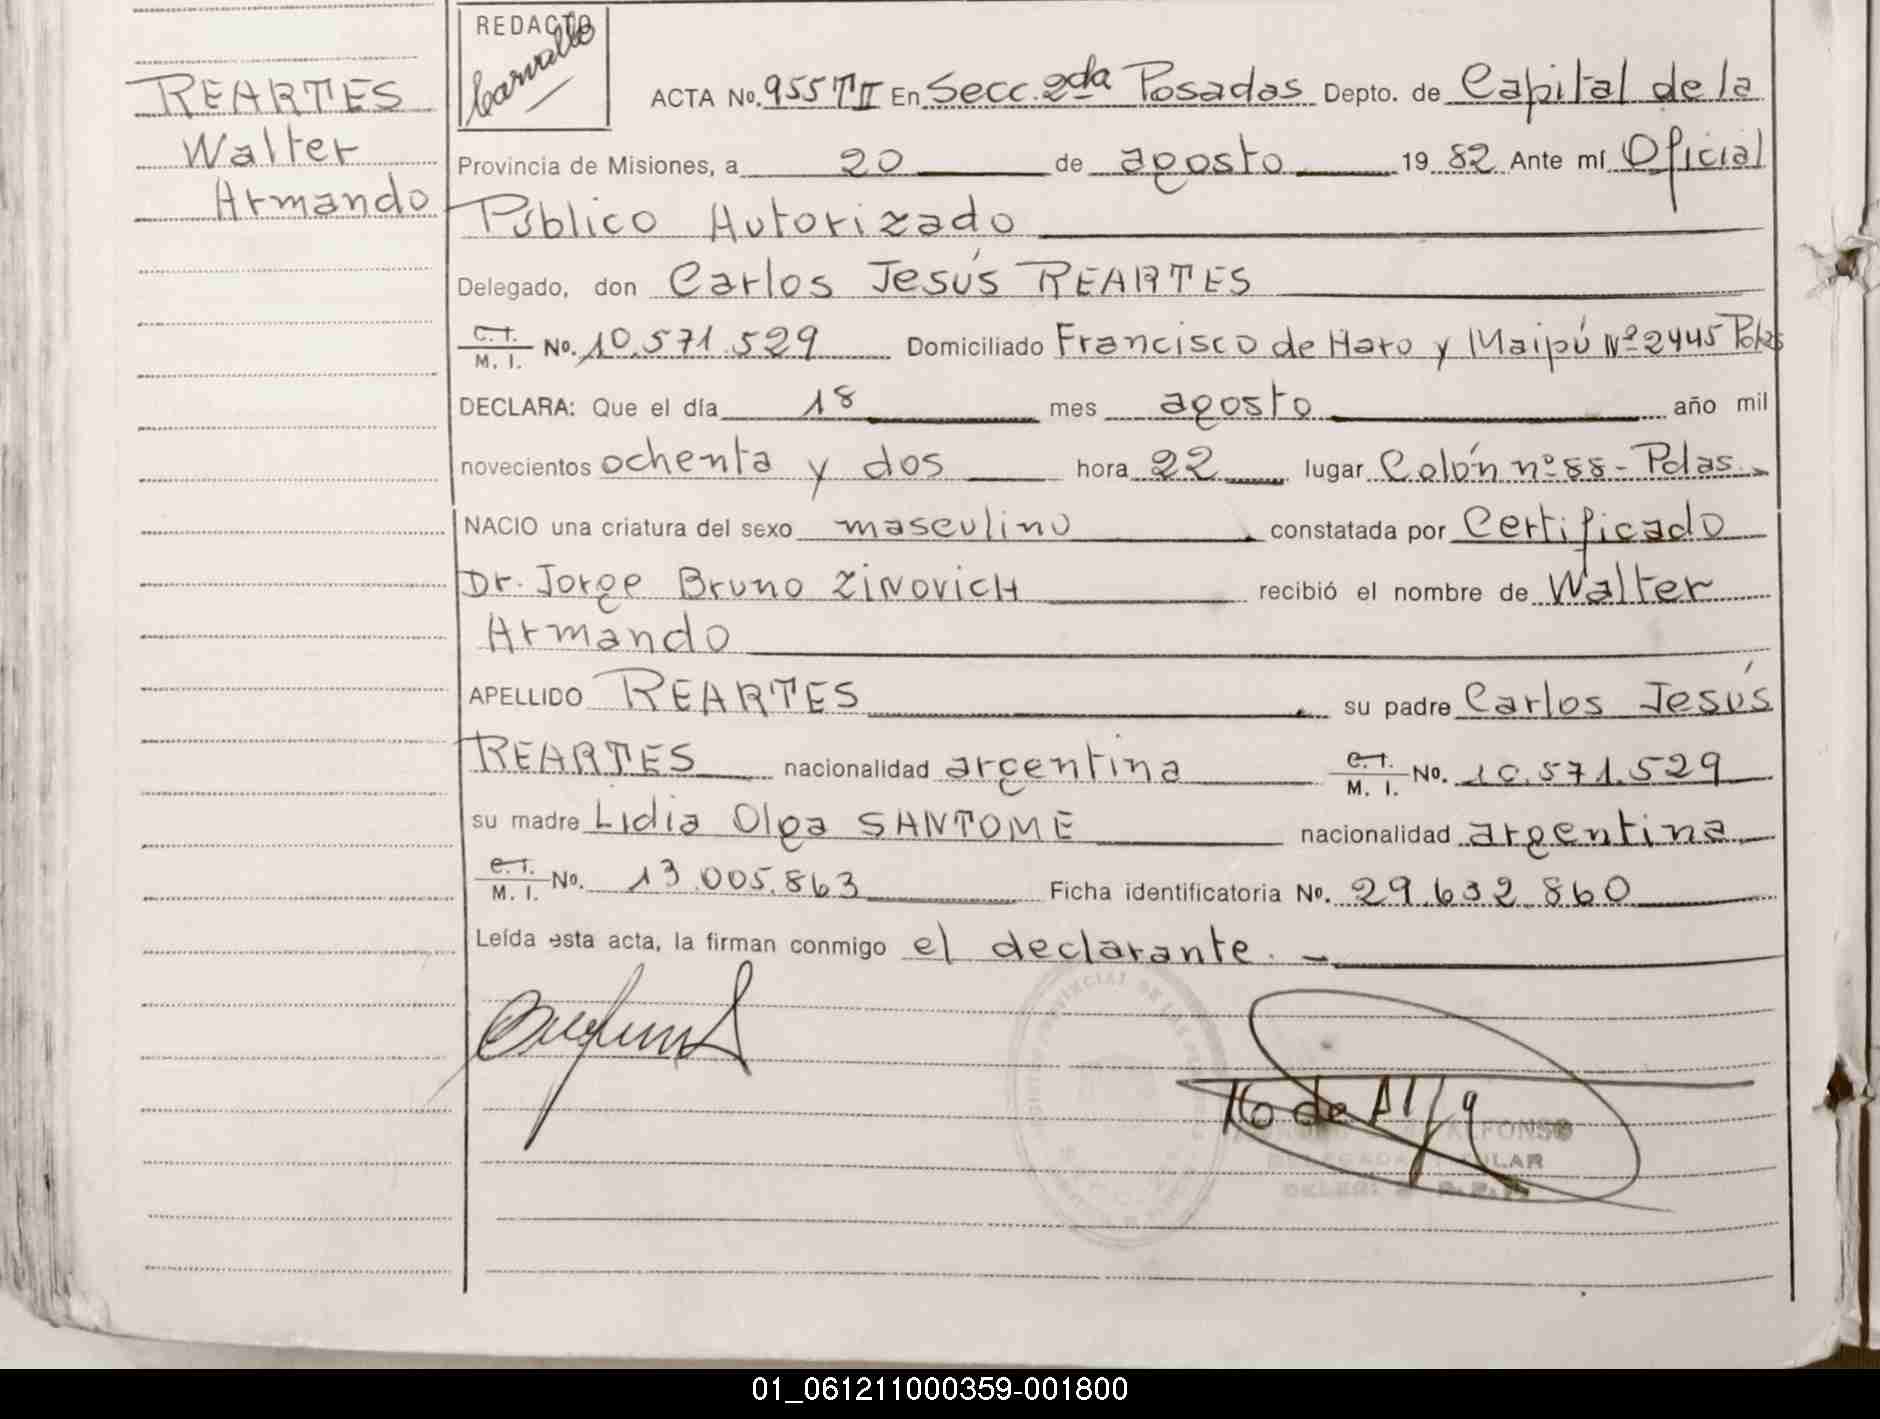 REARTES
Walter
Armando
REDACTO
Carvallo
ACTA No. 955 TII En Secc. 2da Posadas Depto. de Capital de la
Provincia de Misiones, a 20 de agosto 19 82 Ante mí Oficial
Público Autorizado
Delegado, don Carlos Jesús REARTES
C.I. M. I. No. 10.571.529 Domiciliado Francisco de Haro y Maipú Nº 2445 Pdas
DECLARA: Que el día 18 mes agosto año mil
novecientos ochenta y dos hora 22 lugar Colón nº 88 - Pdas.
NACIO una criatura del sexo masculino constatada por Certificado
Dr. Jorge Bruno ZINOVICH recibió el nombre de Walter
Armando
APELLIDO REARTES su padre Carlos Jesús
REARTES nacionalidad argentina C.I. M. I. No. 10.571.529
su madre Lidia Olga SANTOME nacionalidad argentina
C.I. M. I. No. 13.005.863 Ficha identificatoria No. 29.632.860
Leída esta acta, la firman conmigo el declarante.
ALFONSO
01_061211000359-001800